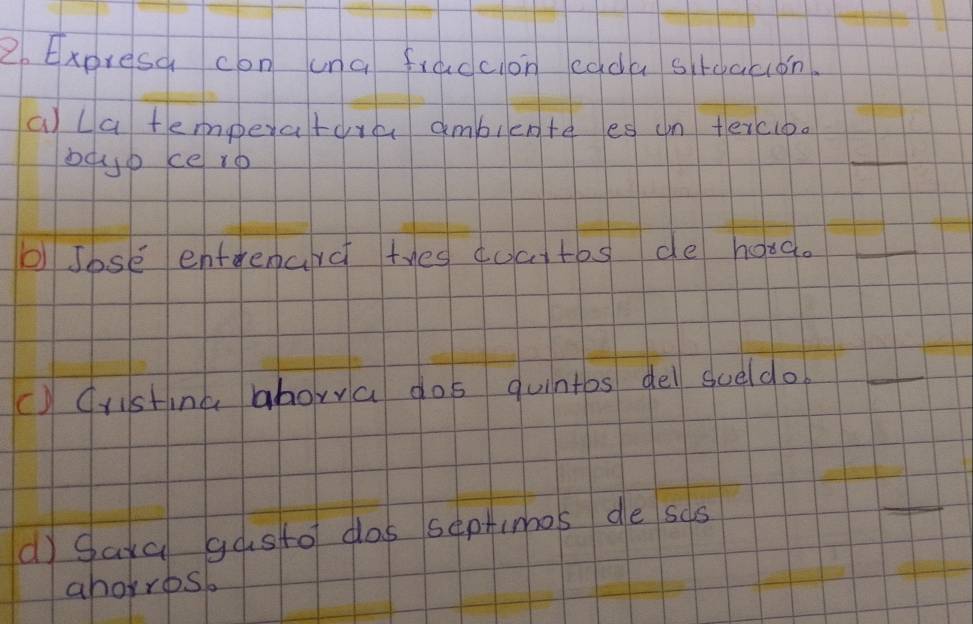 2. Expresa con una fracción cada situación.
a) La temperatura ambiente es un tercio.
bayo cero
b) José entrenará tres cuartos de hora.
c) Cristina ahorra dos quintos del sueldo.
d) Sara gastó dos septimos de sus
ahorros.